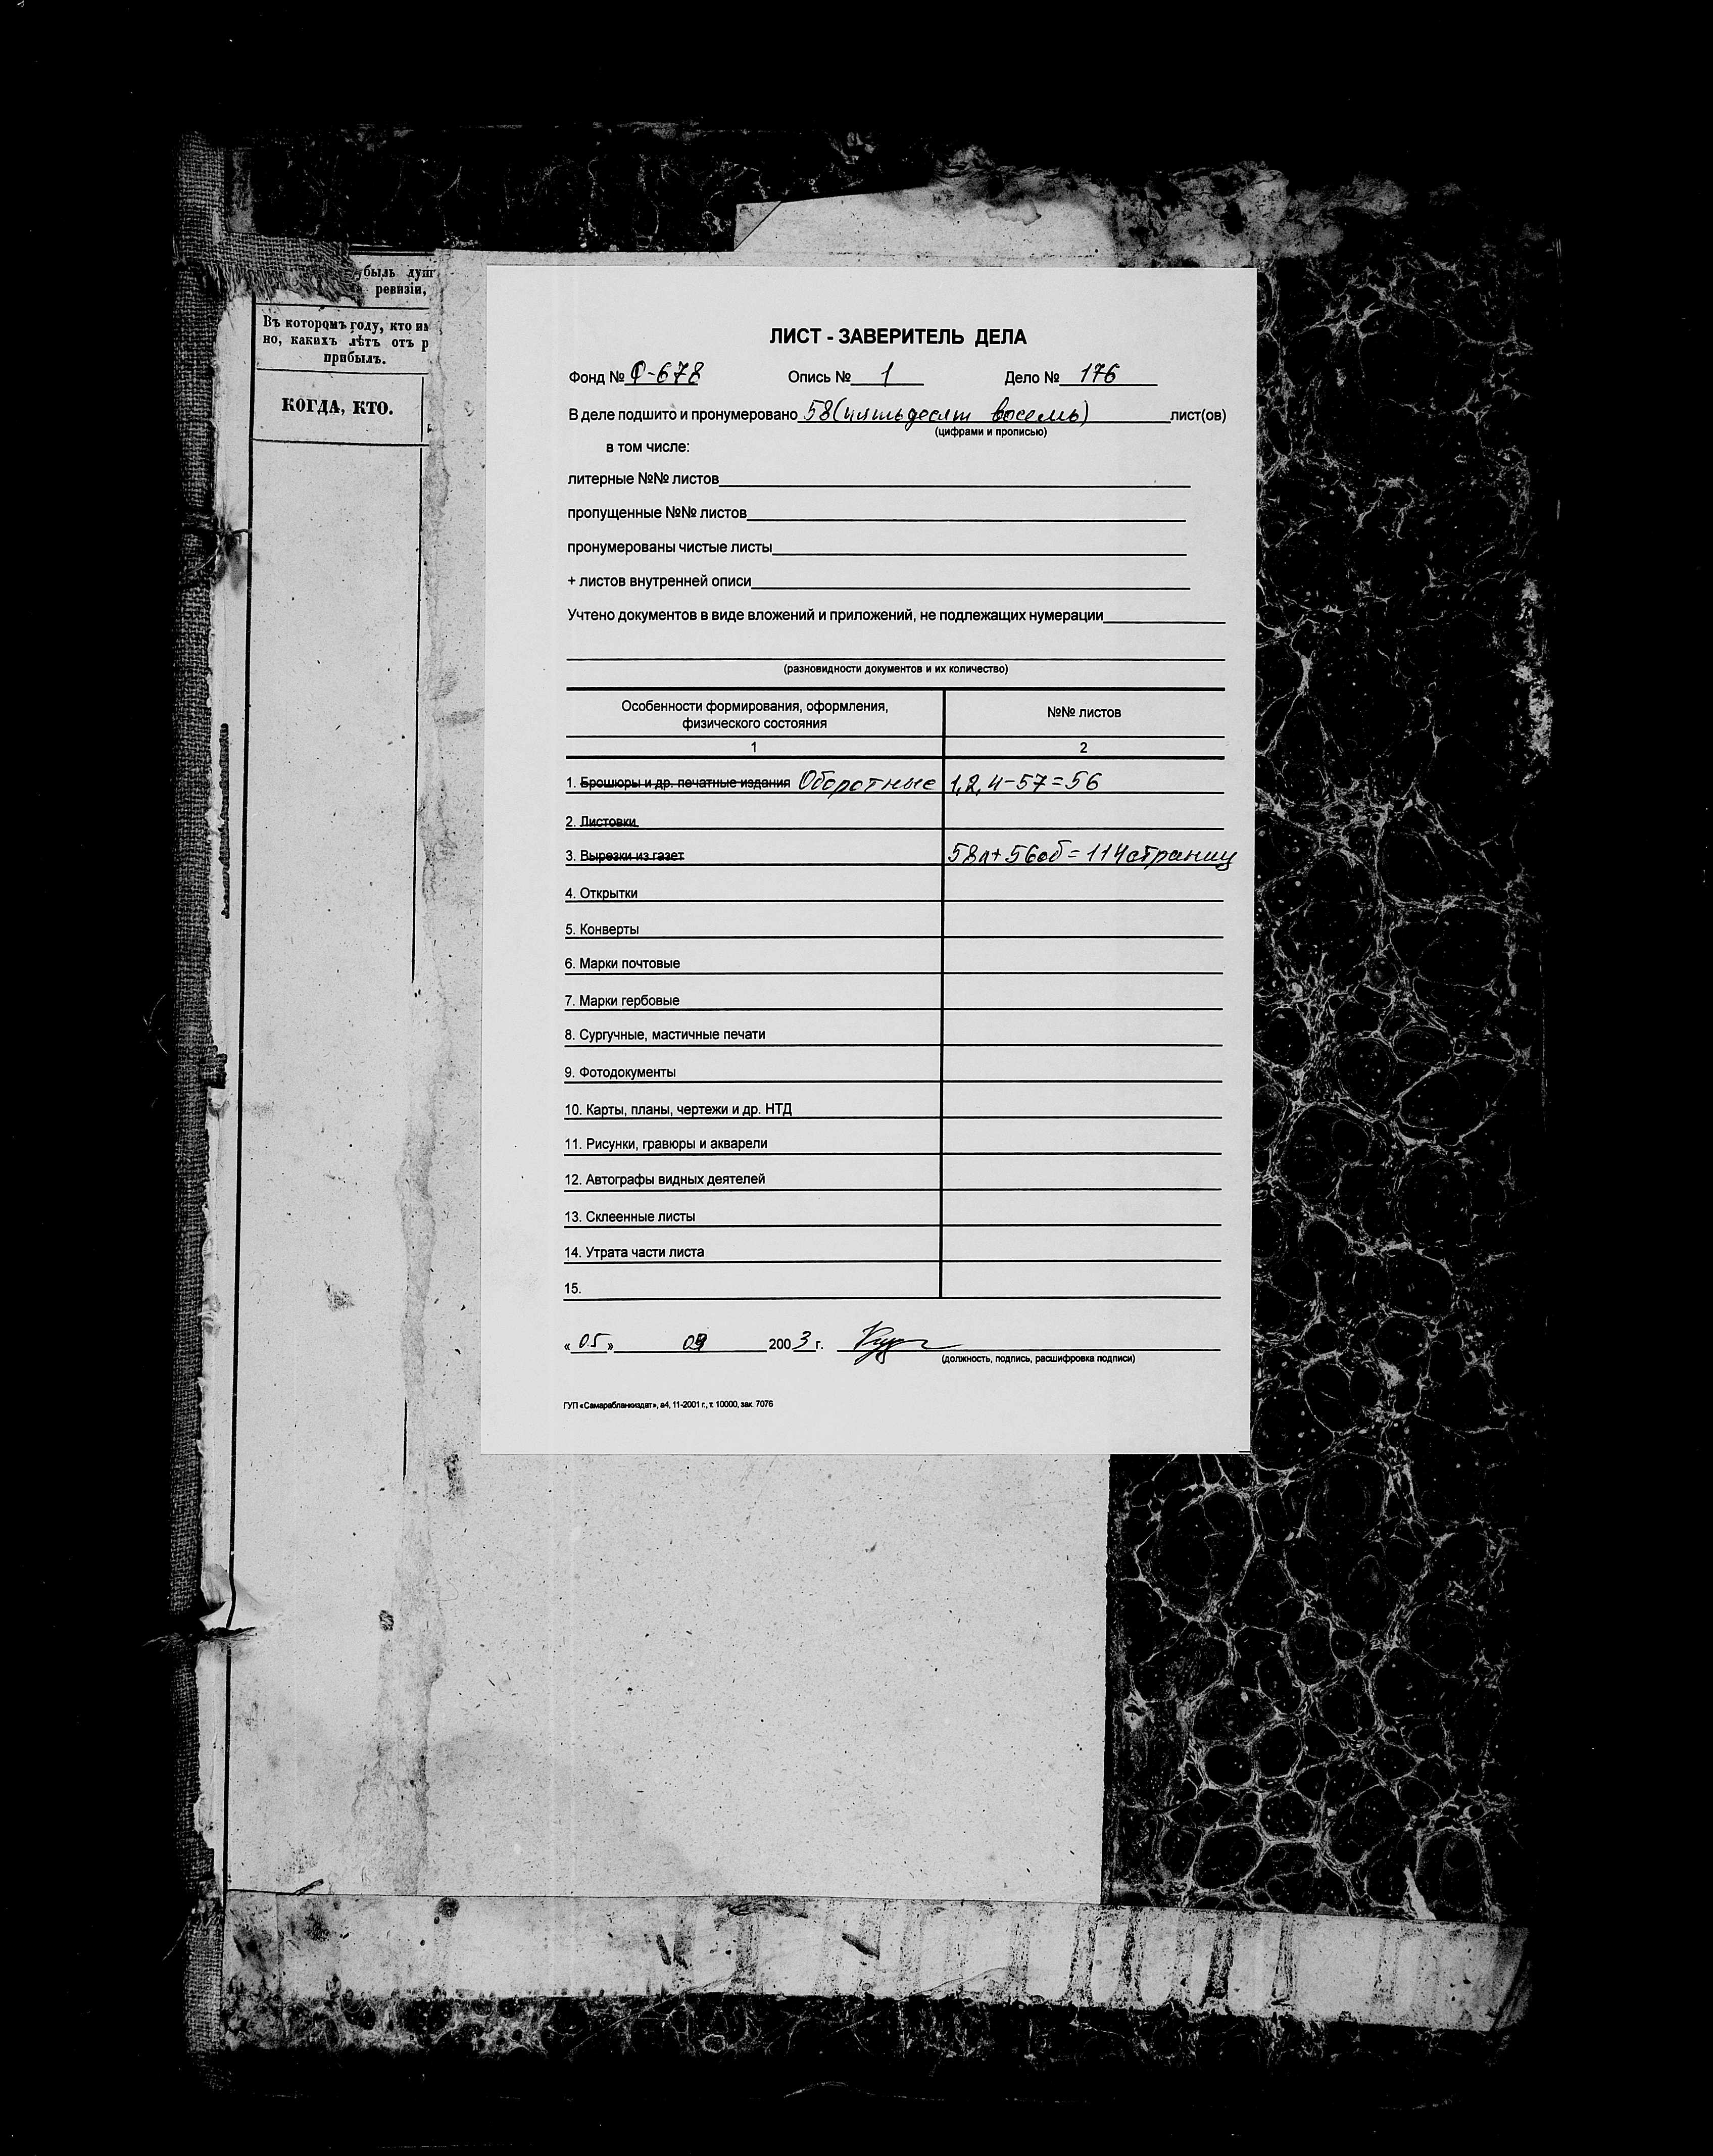 быль душ
ревизіи,
Въ которомъ году, кто им
но, какихъ лѣтъ отъ р
прибылъ.
КОГДА, КТО.
ЛИСТ - ЗАВЕРИТЕЛЬ ДЕЛА
Фонд № Ф-678 Опись № 1 Дело № 176
В деле подшито и пронумеровано 58 (пятьдесят восемь) лист(ов)
(цифрами и прописью)
в том числе:
литерные №№ листов
пропущенные №№ листов
пронумерованы чистые листы
+ листов внутренней описи
Учтено документов в виде вложений и приложений, не подлежащих нумерации
(разновидности документов и их количество)
Особенности формирования, оформления, №№ листов
физического состояния
1 2
1. Брошюры и др. печатные издания Оборотные 1,2,4-57=56
2. Листовки
3. Вырезки из газет 58л+56об=114страниц
4. Открытки
5. Конверты
6. Марки почтовые
7. Марки гербовые
8. Сургучные, мастичные печати
9. Фотодокументы
10. Карты, планы, чертежи и др. НТД
11. Рисунки, гравюры и акварели
12. Автографы видных деятелей
13. Склеенные листы
14. Утрата части листа
15.
« 05 » 09 2003 г.
(должность, подпись, расшифровка подписи)
ГУП «Самарабланкиздат», а4, 11-2001 г., т. 10000, зак. 7076